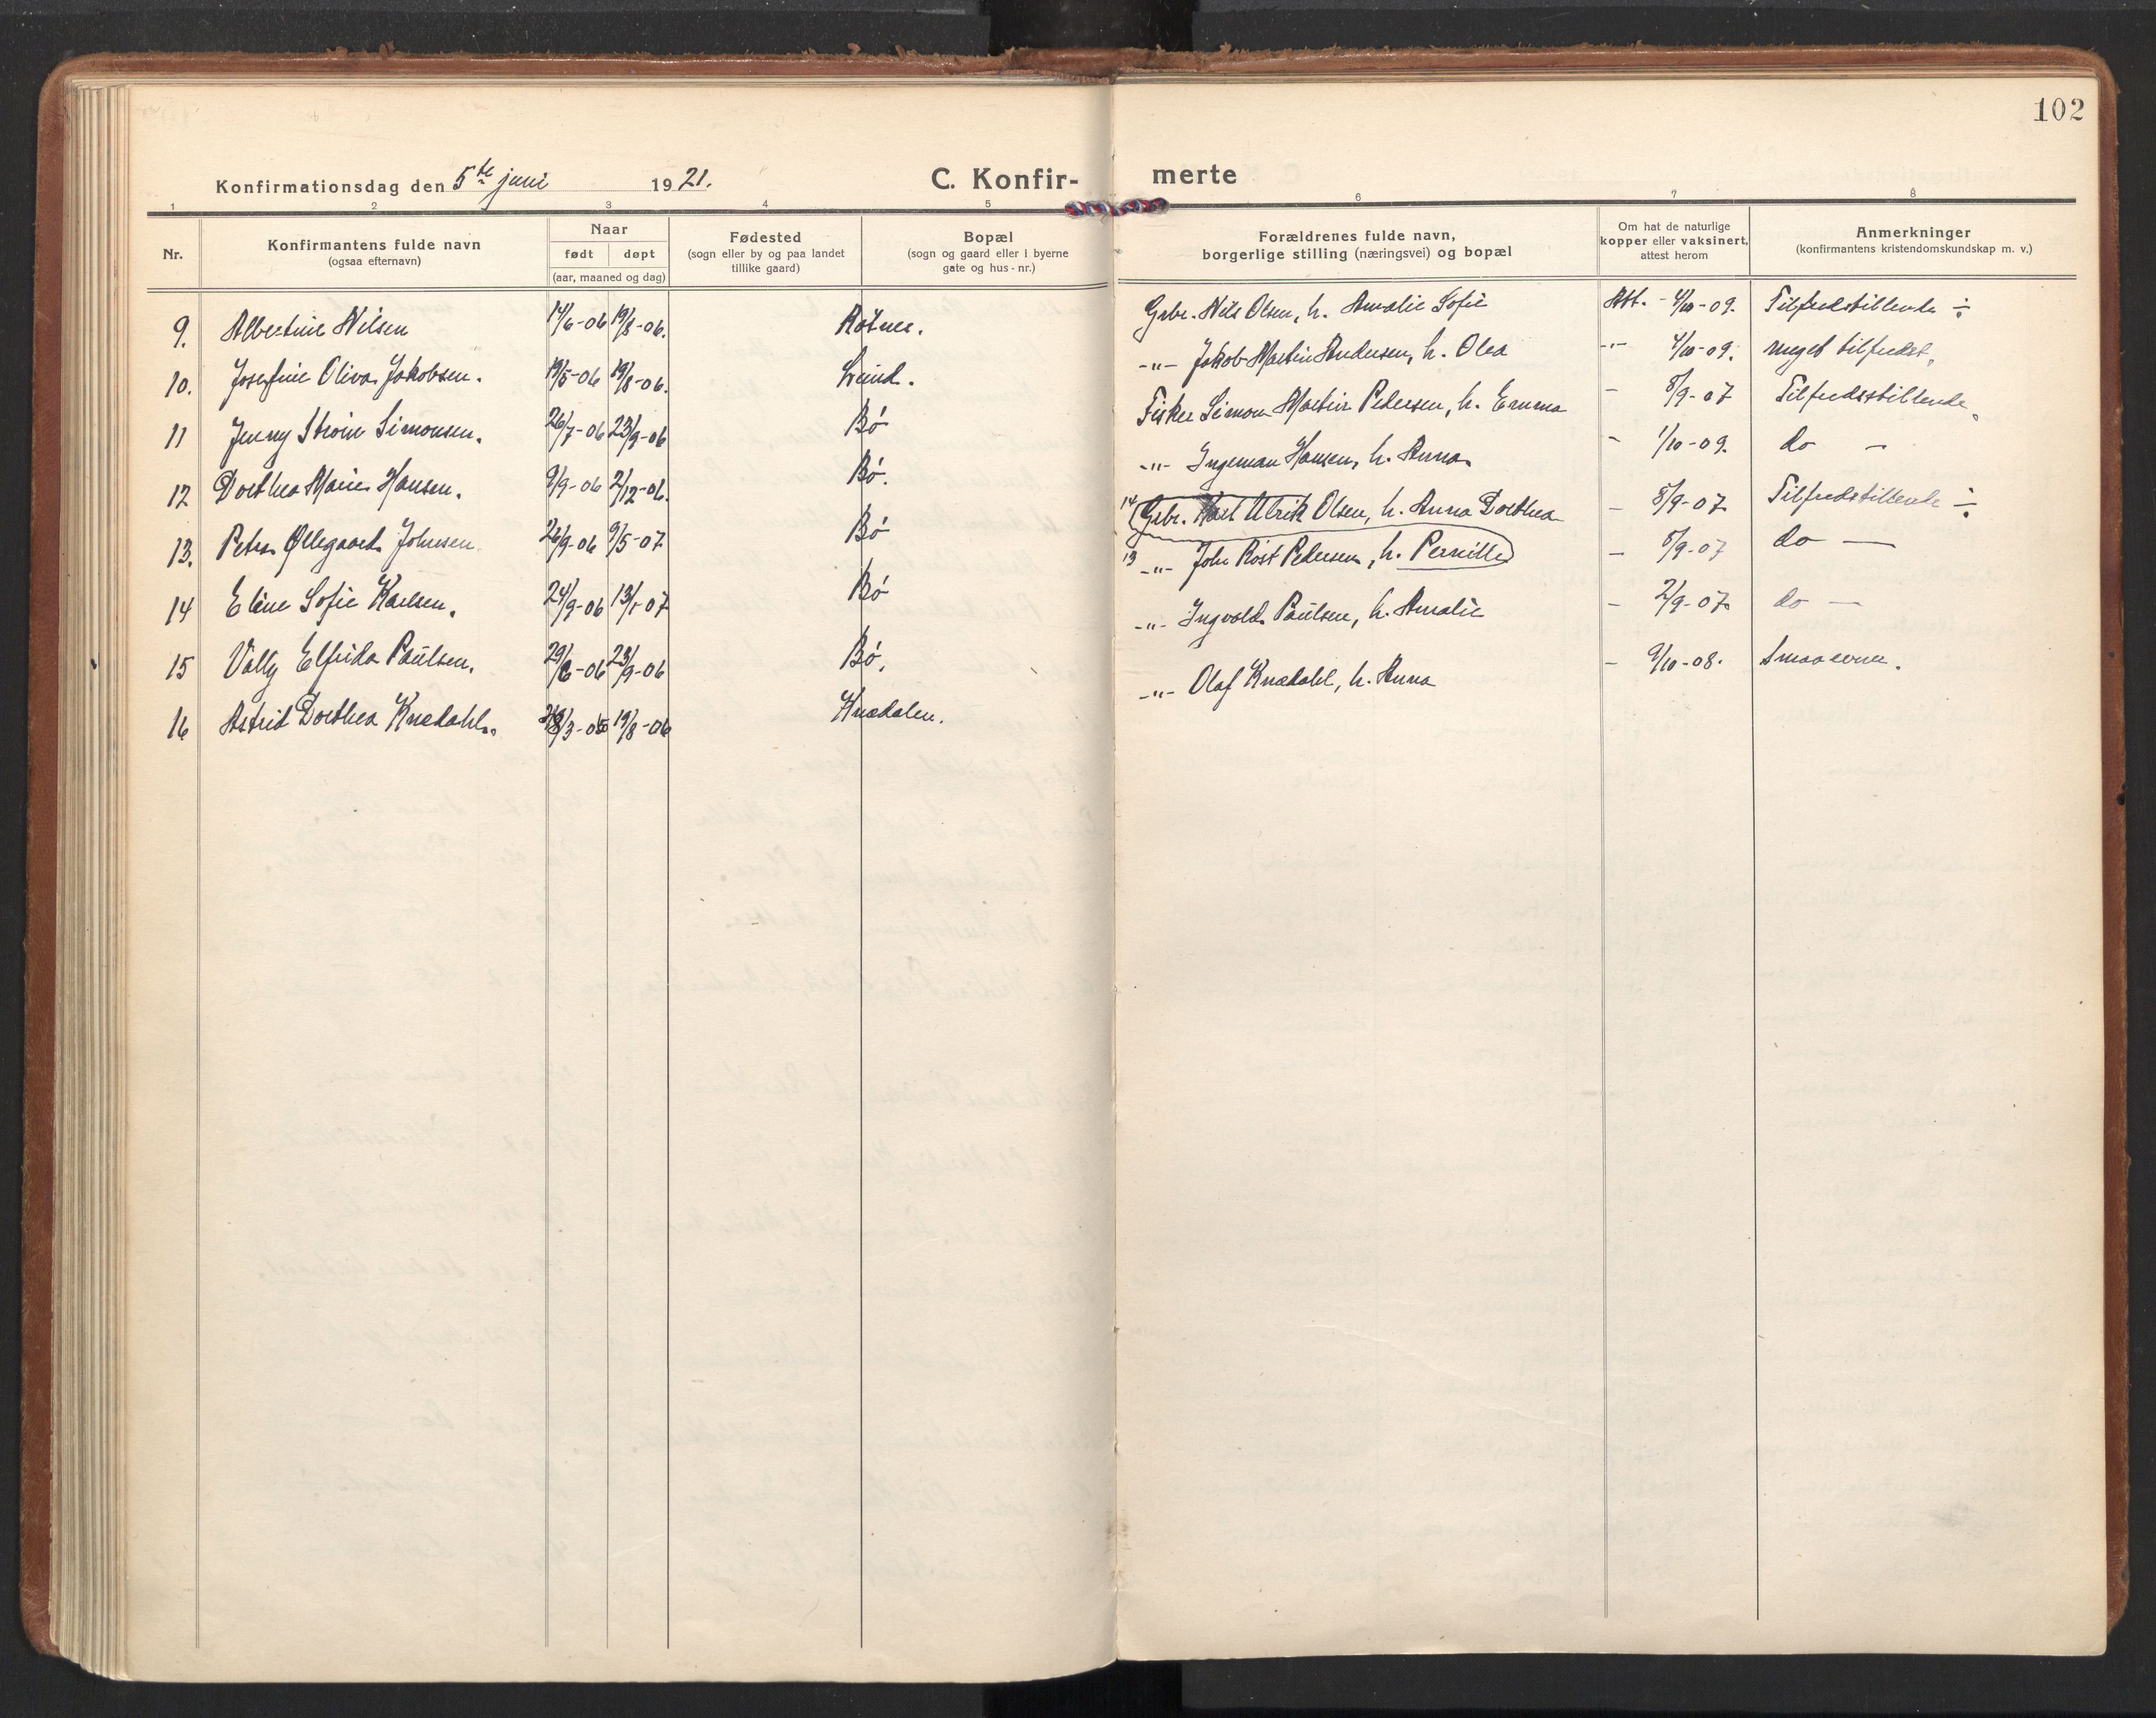 102
Konfirmationsdag den 5te juni 1921.
C. Konfir-
merte
1 2 3 4 5 6 7 8
Nr.
Konfirmantens fulde navn
(ogsaa efternavn)
Naar
født døpt
(aar, maaned og dag)
Fødested
(sogn eller by og paa landet
tillike gaard)
Bopæl
(sogn og gaard eller i byerne
gate og hus-nr.)
Forældrenes fulde navn,
borgerlige stilling (næringsvei) og bopæl
Om hat de naturlige
kopper eller vaksinert,
attest herom
Anmerkninger
(konfirmantens kristendomskundskap m. v.)
9. Albertine Nilsen 14/6-06 19/8-06. Røtnes. Grbr. Nils Olsen, h. Amalie Sofie Att. - 4/10-09. Tilfredstillende ÷
10. Josefine Oliva Jakobsen. 19/5-06 19/8-06. Lund. -"- Jakob Martin Andersen, h. Olea -"- 4/10-09. meget tilfredst.
11 Jenny Simonsen. 26/7-06 23/9-06 Bø Fisker Simon Martin Pedersen, h. Emma - 8/9-07 Tilfredsstillende.
12 Dorthea Marie Hansen. 9/9-06 2/12-06. Bø. -"- Ingeman Hansen, h. Anna - 1/10-09. do -
13. Petra Øllegaard Johnsen 26/9-06 9/5-07 Bø 14 Grbr. Karl Ulrik Olsen, h. Anna Dorthea - 8/9-07 Tilfredstillende ÷
14 Eline Sofie Karlsen. 24/9-06 13/1-07 Bø 13 -"- John Rost Pedersen, h. Pernille - 8/9-07 do -
15 Vally Elfrida Paulsen. 29/6-06 23/9-06 Bø. -"- Ingvald Paulsen, h. Amalie - 2/9-07. do -
16 Astrid Dorthea Knædahl. 28/3-06 19/8-06 Knædalen. -"- Olaf Knædahl, h. Anna - 9/10-08. Smaa evner.